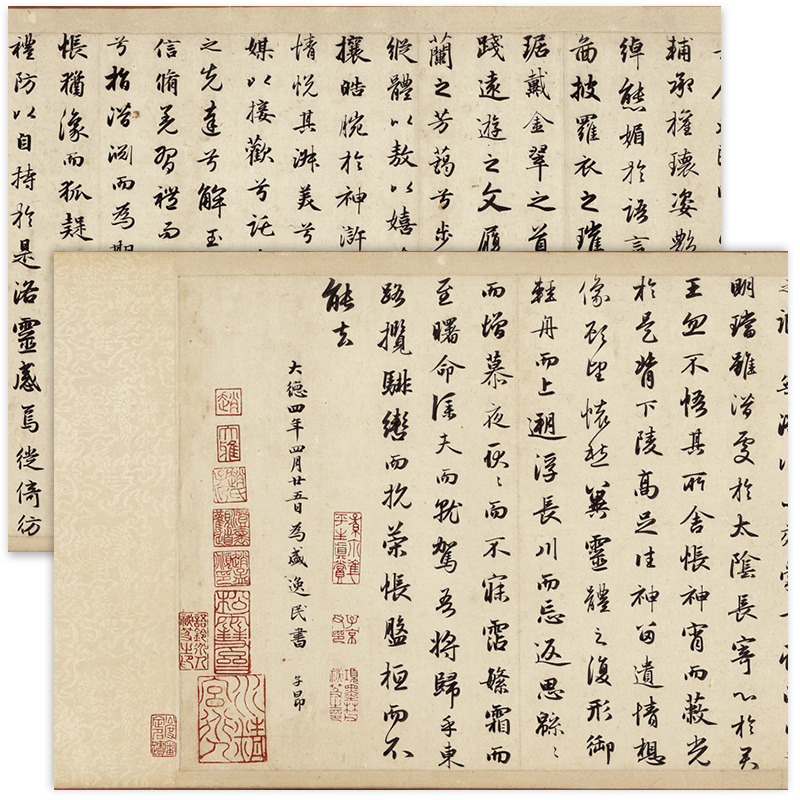 輔承權瓌姿艷
綽態媚於語言
面披羅衣之璀
琚戴金翠之首
踐遠遊之文履
蘭之芳藹兮步
縱體以敖以嬉
攘皓腕於神滸
情悅其淑美兮
媒以接歡兮託
之先達兮解玉
信脩羌習禮而
兮指潛淵而為期
悵猶豫而狐疑
禮防以自持於是洛靈感焉徙倚彷
明璫雖潛處於太陰長寄心於君
王忽不悟其所舍悵神宵而蔽光
於是背下陵高足往神留遺情想
像顧望懷愁冀靈體之復形御
輕舟而上遡浮長川而忘返思綿〻
而增慕夜耿〻而不寐霑繁霜而
至曙命僕夫而就駕吾將歸乎東
路攬騑轡而抗策悵盤桓而不
能去
大德四年四月廿五日為盛逸民書 子昂
趙
大雅